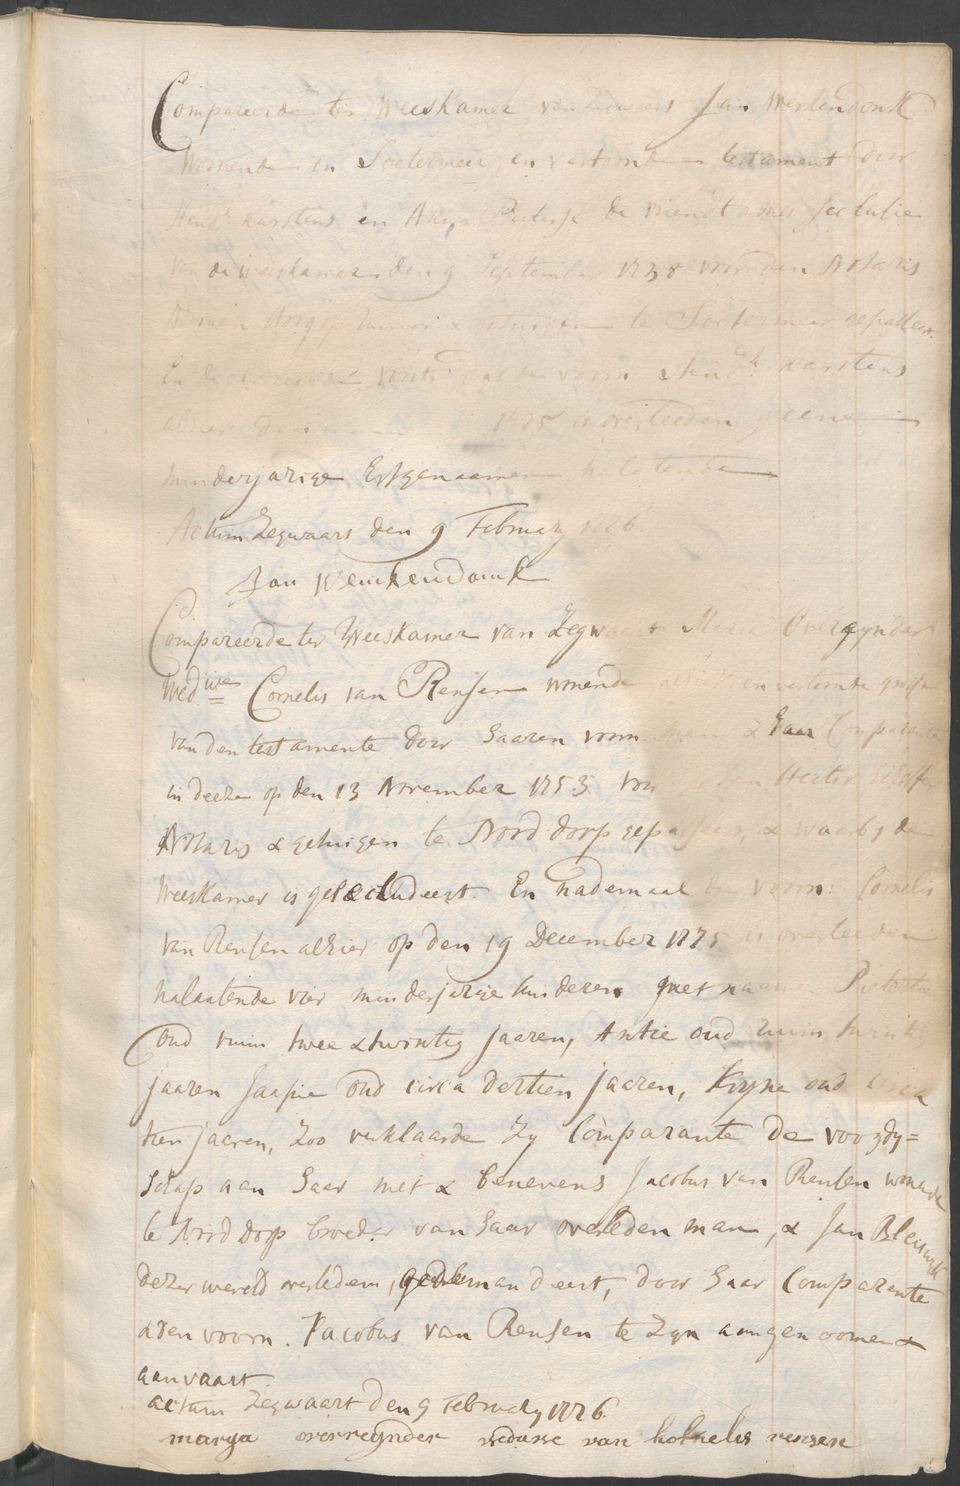 Compareerde ter Weeskamer van Zegwaart Jan Werkendonk
Woonende in Soetermeer en vertoonde testament door
Hendk karstens en Pieterse de vriendt met seclusie
van de weeskamer den 9 September 1738 voor den Notaris
Junior & getuigen te Soetermeer gepasseert.
En declareerde voorts dat de voorn Hendk karstens
alhier den 1775 is overleeden geene
minderjarige Erfgenaamen nalatende
Actum Zegwaart den 9 February 1776
Jan Werckendonck
Compareerde ter Weeskamer van Zegwaart Overrynder
Wedwe Cornelis van Rensen wonende alhier en vertoonde grosse
van den testamente door haaren voorn man & haar Comparante
in deeze op den 13 November 1753 voor
Notaris & getuigen te Norddorp gepasseert, & waarby de
Weeskamer is gesecludeert. En nademaal de voorn: Cornelis
van Rensen alhier op den 19 December 1775 is overleeden
nalaatende vier minderjarige kinderen met naamen Pietertie
oud ruim twee & twintig jaaren, Antie oud ruim twintig
jaaren Jaapie oud circa dertien jaaren, Kryne oud circa
tien jaaren, Zoo verklaarde Zy Comparante de voogdy=
schap aan haar met & benevens Jacobus van Rensen wonende
te Norddorp broeder van haar overleden man, & Jan Bleiswyk
dezer wereld overleden, gedemandeert, door haar Comparante
& den voorn. Jacobus van Rensen te Zyn aangenoomen &
aanvaart
actum Zegwaart den 9 February 1776.
marya overreynder weduwe van kornelis rensen